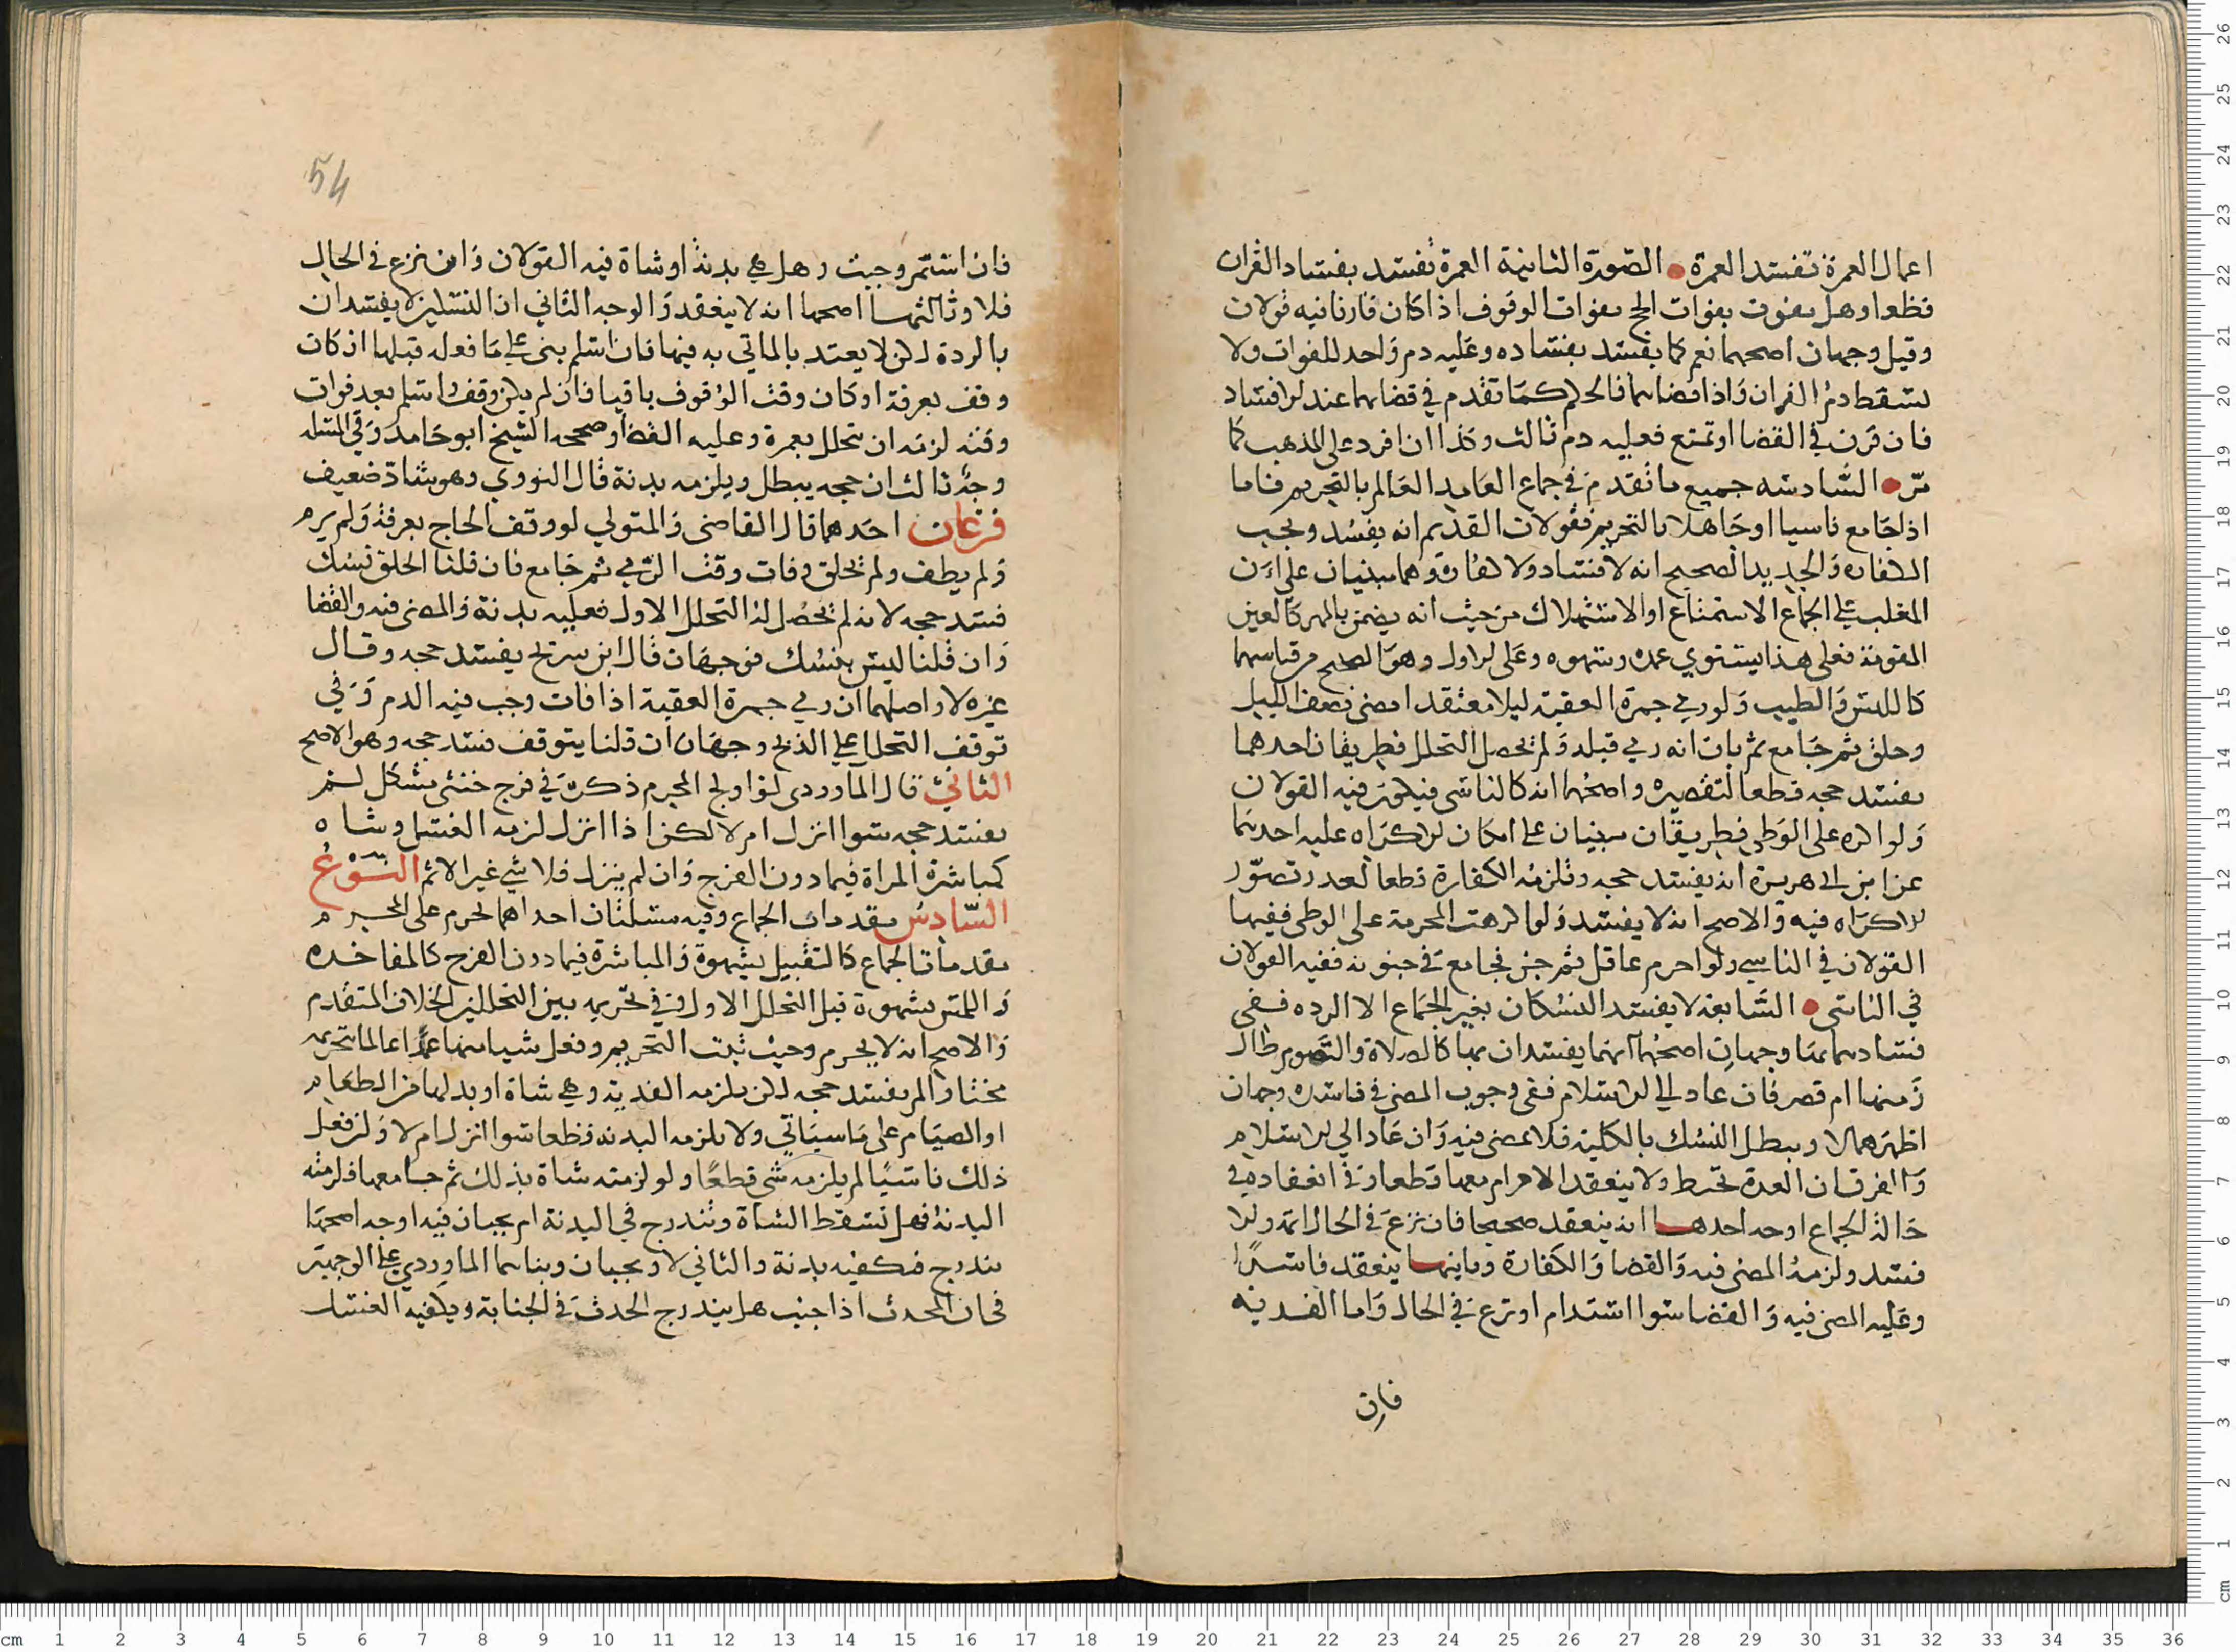 اعمال العمرة تفسد العمرة • الصورة الثانية العمرة تفسد بفساد القران
قطعا وهل تفوت بفوات الحج بفوات الوقوف اذا كان قارنا فيه قولان
وقيل وجهان اصحهما نعم كما يفسد بفساده وعليه دم واحد للفوات ولا
يسقط دم القران واذا قضاهما فالحكم كما تقدم في قضايهما عند الافساد
فان قرن في القضا او تمتع فعليه دم ثالث وكذا ان افرد على المذهب كما
مر • السادسة جميع ما تقدم في جماع العامد العالم بالتحريم فاما
اذا جامع ناسيا او جاهلا بالتحريم فقولان القديم انه يفسد ويجب
الكفارة والجديد الصحيح انه لا فساد ولا كفارة وهما مبنيان على ان
المغلب في الجماع الاستمتاع او الاستهلاك من حيث انه يضمن بالمهر كالعين
المقومة فعلى هذا يستوي عمده وسهوه وعلى الاول وهو الصحيح من قياسهما
كاللبس والطيب ولو رمي جمرة العقبة ليلا معتقدا مضى نصف الليل
وحلق ثم جامع ثم بان انه رمي قبله ولم يحصل التحلل فطريقان احدهما
يفسد حجه قطعا لتقصيره واصحهما انه كالناسي فيكون فيه القولان
ولو اكره على الوطى فطريقان مبنيان على امكان الاكراه عليه احدهما
عن ابن ابي هريرة انه يفسد حجه وتلزمه الكفارة قطعا لتعذر تصور
الاكراه فيه والاصح انه لا يفسد ولو اكرهت المحرمة على الوطى ففيها
القولان في الناسي ولو احرم عاقل ثم جن فجامع في جنونه ففيه القولان
في الناسي • السابعة لا يفسد النسكان بغير الجماع الا الردة ففي
فسادهما بها وجهان اصحهما انهما يفسدان بها كالصلاة والصوم طال
زمنها ام قصر فان عاد الي الاسلام ففي وجوب المضي في فاسده وجهان
اظهرهما لا ويبطل النسك بالكلية فلا يمضى فيه وان عاد الي الاسلام
والفرق ان الردة تحبط ولا ينعقد الاحرام معها قطعا وفي انعقاده في
حالة الجماع اوجه احدها انه ينعقد صحيحا فان نزع في الحال اتمه والا
فسد ولزمه المضي فيه والقضا والكفارة وثانيها ينعقد فاسدا
وعليه المضي فيه والقضا سوا استدام او نزع في الحال واما الفدية
فان
54
فان استمر وجبت وهل هي بدنة او شاة فيه القولان وان نزع في الحال
فلا وثالثها اصحها انه لا ينعقد والوجه الثاني ان النسكين لا يفسدان
بالردة لكن لا يعتد بالماتي به فيها فان اسلم بنى على ما فعله قبلها ان كان
وقف بعرفة او كان وقت الوقوف باقيا فان لم يكن وقف واسلم بعد فوات
وقته لزمه ان يتحلل بعمرة وعليه القضا وصححه الشيخ ابو حامد وفي المسلة
وجه ثالث ان حجه يبطل ويلزمه بدنة قال النووي وهو شاذ ضعيف
فرعان احدهما قال القاضي والمتولي لو وقف الحاج بعرفة ولم يرم
ولم يطف ولم يحلق وفات وقت الرمي ثم جامع فان قلنا الحلق نسك
فسد حجه لانه لم يحصل له التحلل الاول فعليه بدنة والمضي فيه والقضا
وان قلنا ليس بنسك فوجهان قال ابن سريج يفسد حجه وقال
غيره لا واصلهما ان رمي جمرة العقبة اذا فات وجب فيه الدم وفي
توقف التحلل على الذبح وجهان ان قلنا يتوقف فسد حجه وهو الاصح
الثاني قال الماوردي لو اولج المحرم ذكره في فرج خنثى مشكل لم
يفسد حجه سوا انزل ام لا لكن اذا انزل لزمه الغسل وشاه
كمباشرة المراة فيما دون الفرج وان لم ينزل فلا شي غير الاثم النوع
السادس مقدمات الجماع وفيه مسلتان احداهما تحرم على المحرم
مقدمات الجماع كالتقبيل بشهوة والمباشرة فيما دون الفرج كالمفاخده
واللمس بشهوة قبل التحلل الاول وفي تحريمه بين التحللين الخلاف المتقدم
والاصح انه لا يحرم وحيث ثبت التحريم وفعل شيا منها عمدا عالما بتحريمه
مختارا لم يفسد حجه لكن يلزمه الفدية وهي شاة او بدلها من الطعام
او الصيام على ما سياتي ولا يلزمه البدنه قطعا سوا انزل ام لا ولو فعل
ذلك ناسيا لم يلزمه شي قطعا ولو لزمته شاة بذلك ثم جامعها فلزمته
البدنة فهل تسقط الشاة وتندرج في البدنة ام يجبان فيه اوجه اصحها
يندرج فيكفيه بدنة والثاني لا ويجبان وبناهما الماوردي على الوجهين
في ان المحدث اذا اجنب هل يندرج الحدث في الجنابة ويكفيه الغسل